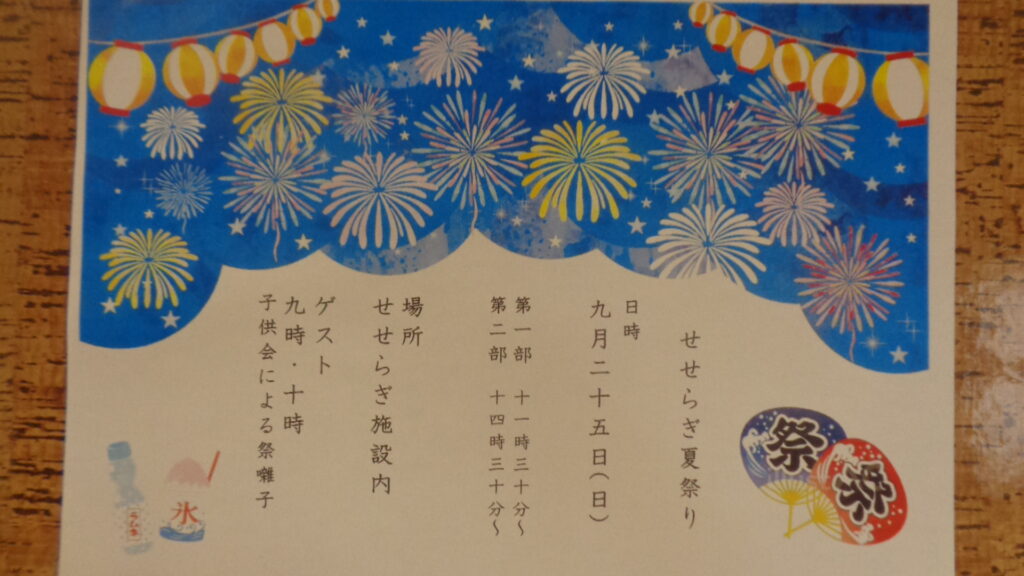 せせらぎ夏祭り
日時
九月二十五日(日)
第一部 十一時三十分～
第二部 十四時三十分～
場所
せせらぎ施設内
ゲスト
九時・十時
子供会による祭囃子
祭
祭
氷
ラムネ